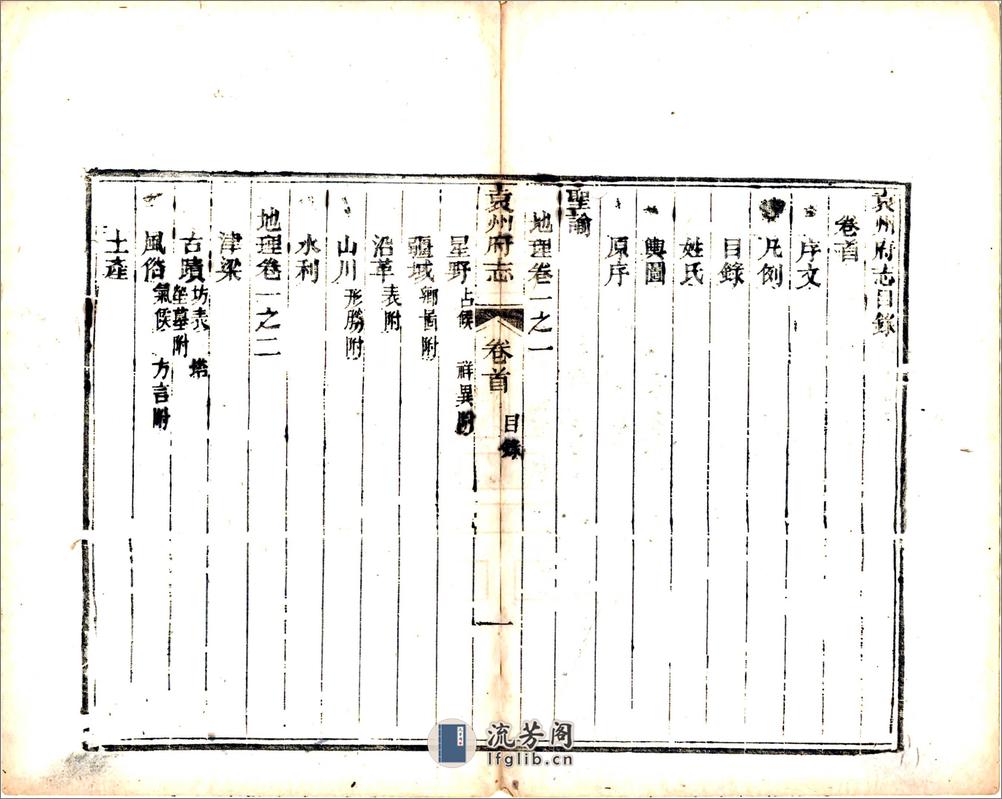 袁州府志目錄
卷首
序文
凡例
目錄
姓氏
輿圖
原序
聖諭
地理卷一之一
袁州府志 卷首 目錄 一
星野 占候 祥異附
疆域 鄉啚附
沿革 表附
山川 形勝附
水利
地理卷一之二
津梁
古蹟 坊表 塔 塋墓附
風俗 氣候 方言附
土產
流芳阁
lfglib.cn